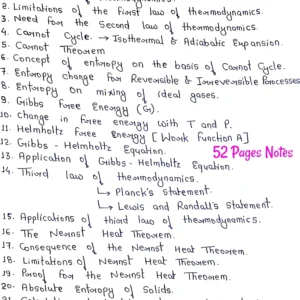 2. Limitations of the first law of thermodynamics.
3. Need for the Second law of thermodynamics.
4. Carnot Cycle. → Isothermal & Adiabatic Expansion.
5. Carnot Theorem
6. Concept of entropy on the basis of Carnot Cycle.
7. Entropy change for Reversible & Irreversible Processes
8. Entropy on mixing of ideal gases.
9. Gibbs Free Energy (G).
10. Change in free energy with T and P.
11. Helmholtz Free Energy [Work function A]
12. Gibbs - Helmholtz Equation.
52 Pages Notes
13. Application of Gibbs - Helmholtz Equation.
14. Third law of thermodynamics.
↳ Planck's Statement.
↳ Lewis and Randall's statement.
15. Applications of third law of thermodynamics.
16. The Nernst Heat Theorem.
17. Consequence of the Nernst Heat Theorem.
18. Limitations of Nernst Heat Theorem.
19. Proof for the Nernst Heat Theorem.
20. Absolute Entropy of Solids.